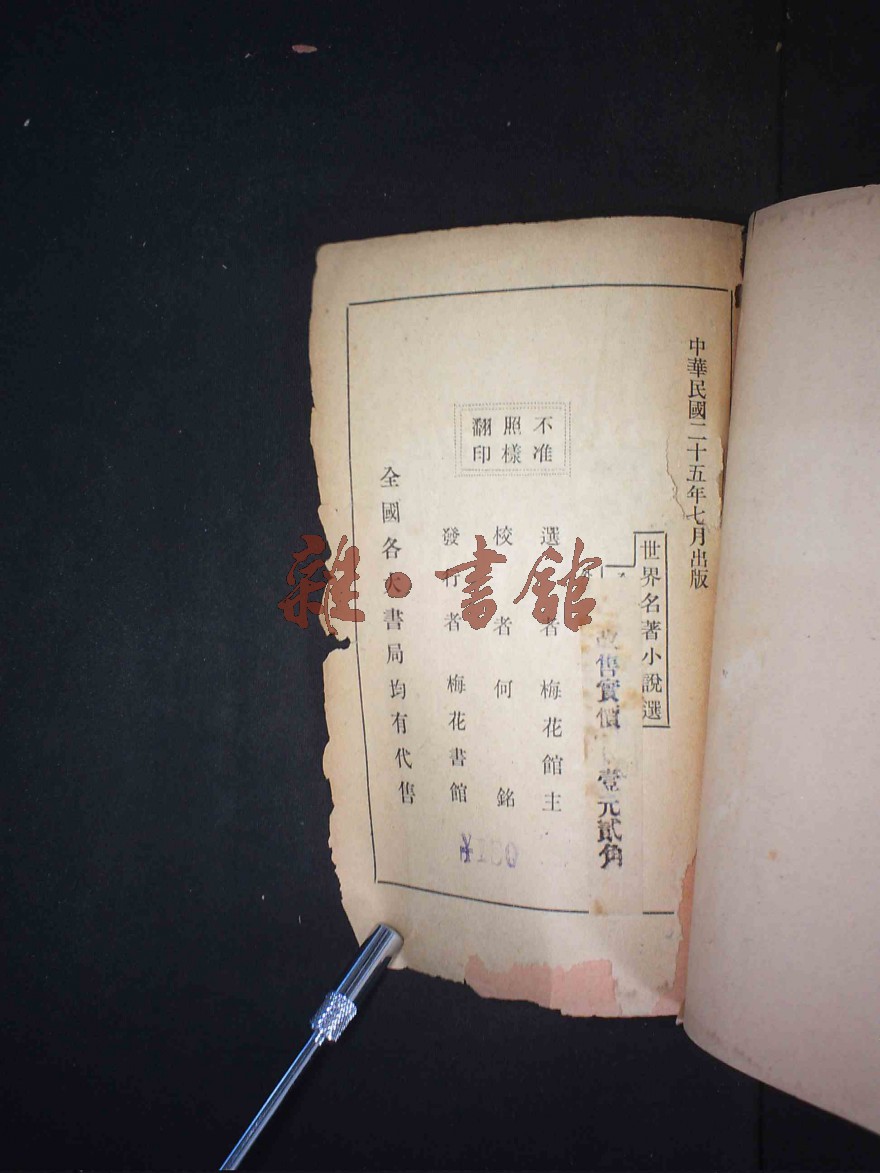 中華民國二十五年七月出版
世界名著小說選
售實價 壹元貳角
選 者 梅花館主
校 者 何 銘
發行者 梅花書館
不准
照樣
翻印
全國各大書局均有代售
雜·書館